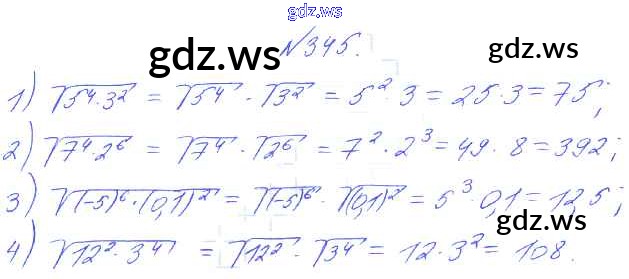 gdz.ws
№345.
gdz.ws gdz.ws
1) √(5⁴·3²) = √5⁴ · √3² = 5²·3 = 25·3 = 75;
2) √(7⁴·2⁶) = √7⁴ · √2⁶ = 7²·2³ = 49·8 = 392;
3) √((-5)⁶·(0,1)²) = √(-5)⁶ · √(0,1)² = 5³·0,1 = 12,5;
gdz.ws gdz.ws
4) √(12²·3⁴) = √12² · √3⁴ = 12·3² = 108.